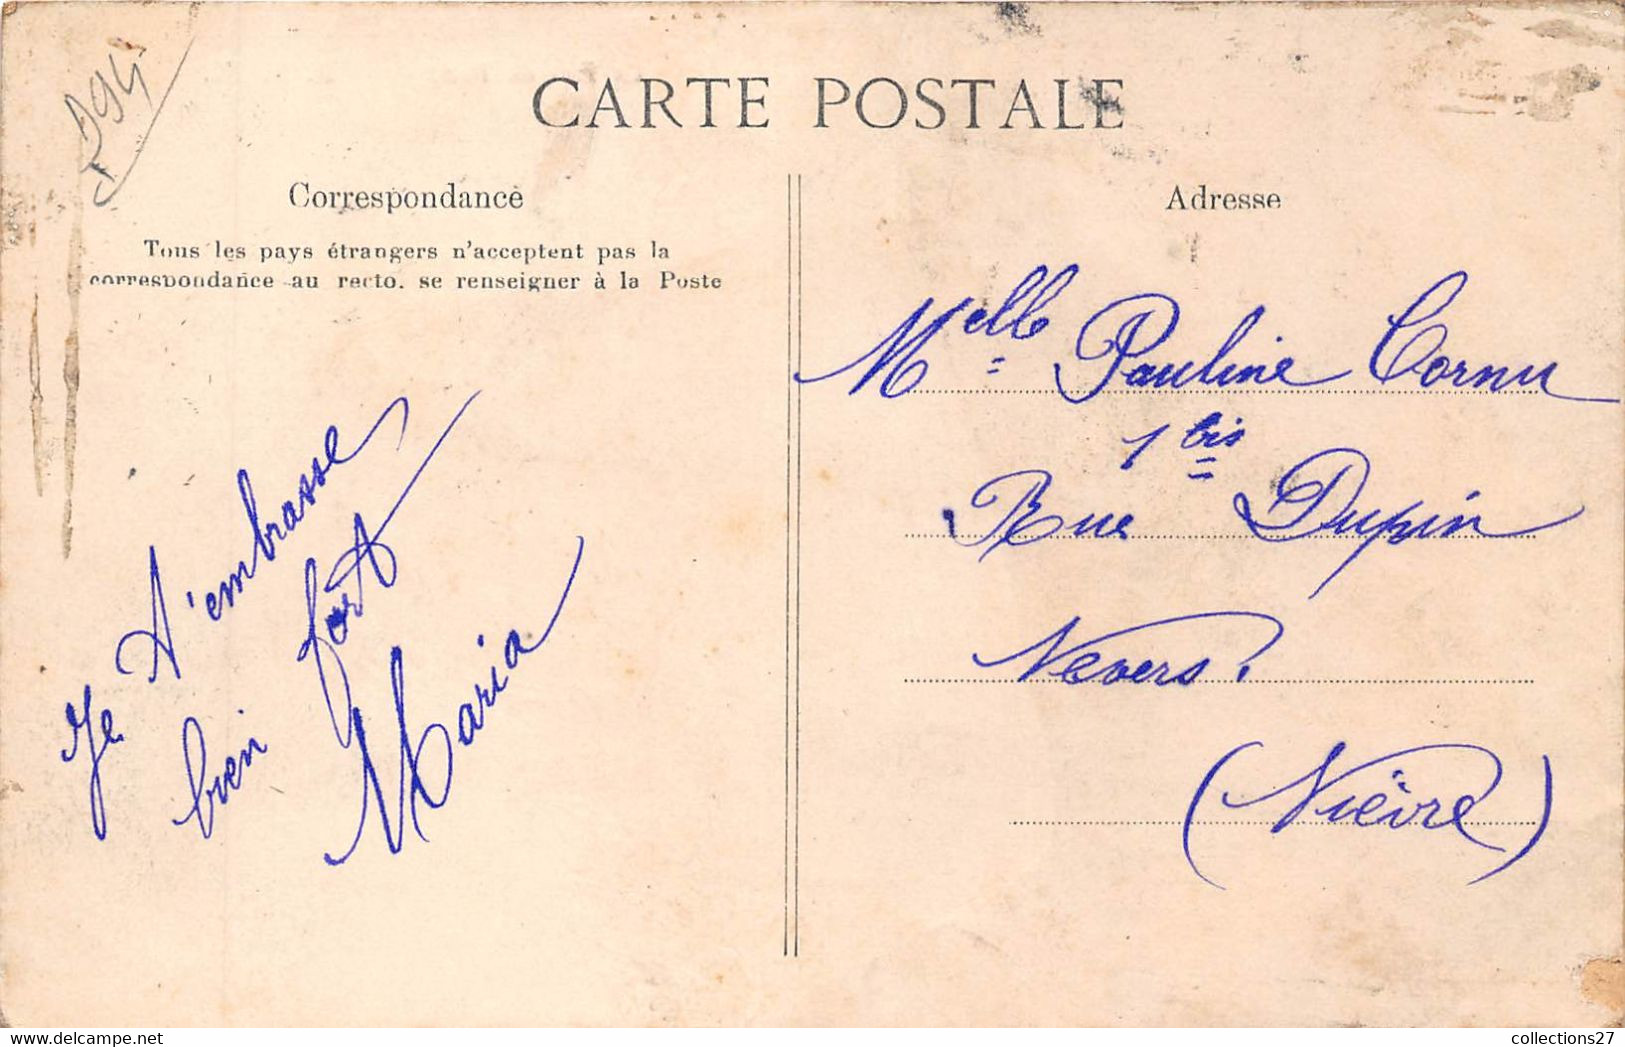 CARTE POSTALE
Correspondance
Tous les pays étrangers n'acceptent pas la
correspondance au recto. se renseigner à la Poste
Je t'embrasse
bien fort
Maria
Adresse
Melle Pauline Cornu
1 bis
Rue Dupin
Nevers.
(Nièvre)
collections27